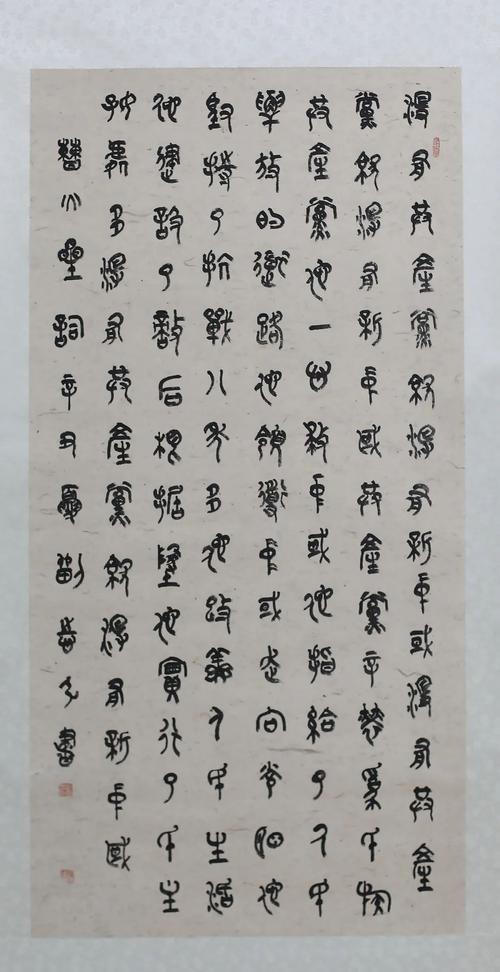 沒有共產黨就沒有新中國沒有共產
黨就沒有新中國共產黨辛勞為民族
共產黨他一心救中國他指給了人民
解放的道路他領導中國走向光明他
堅持了抗戰八年多他改善人民生活
他建設了敵后根據地他實行了民主
好處多沒有共產黨就沒有新中國
曹火星詞辛丑夏劉書